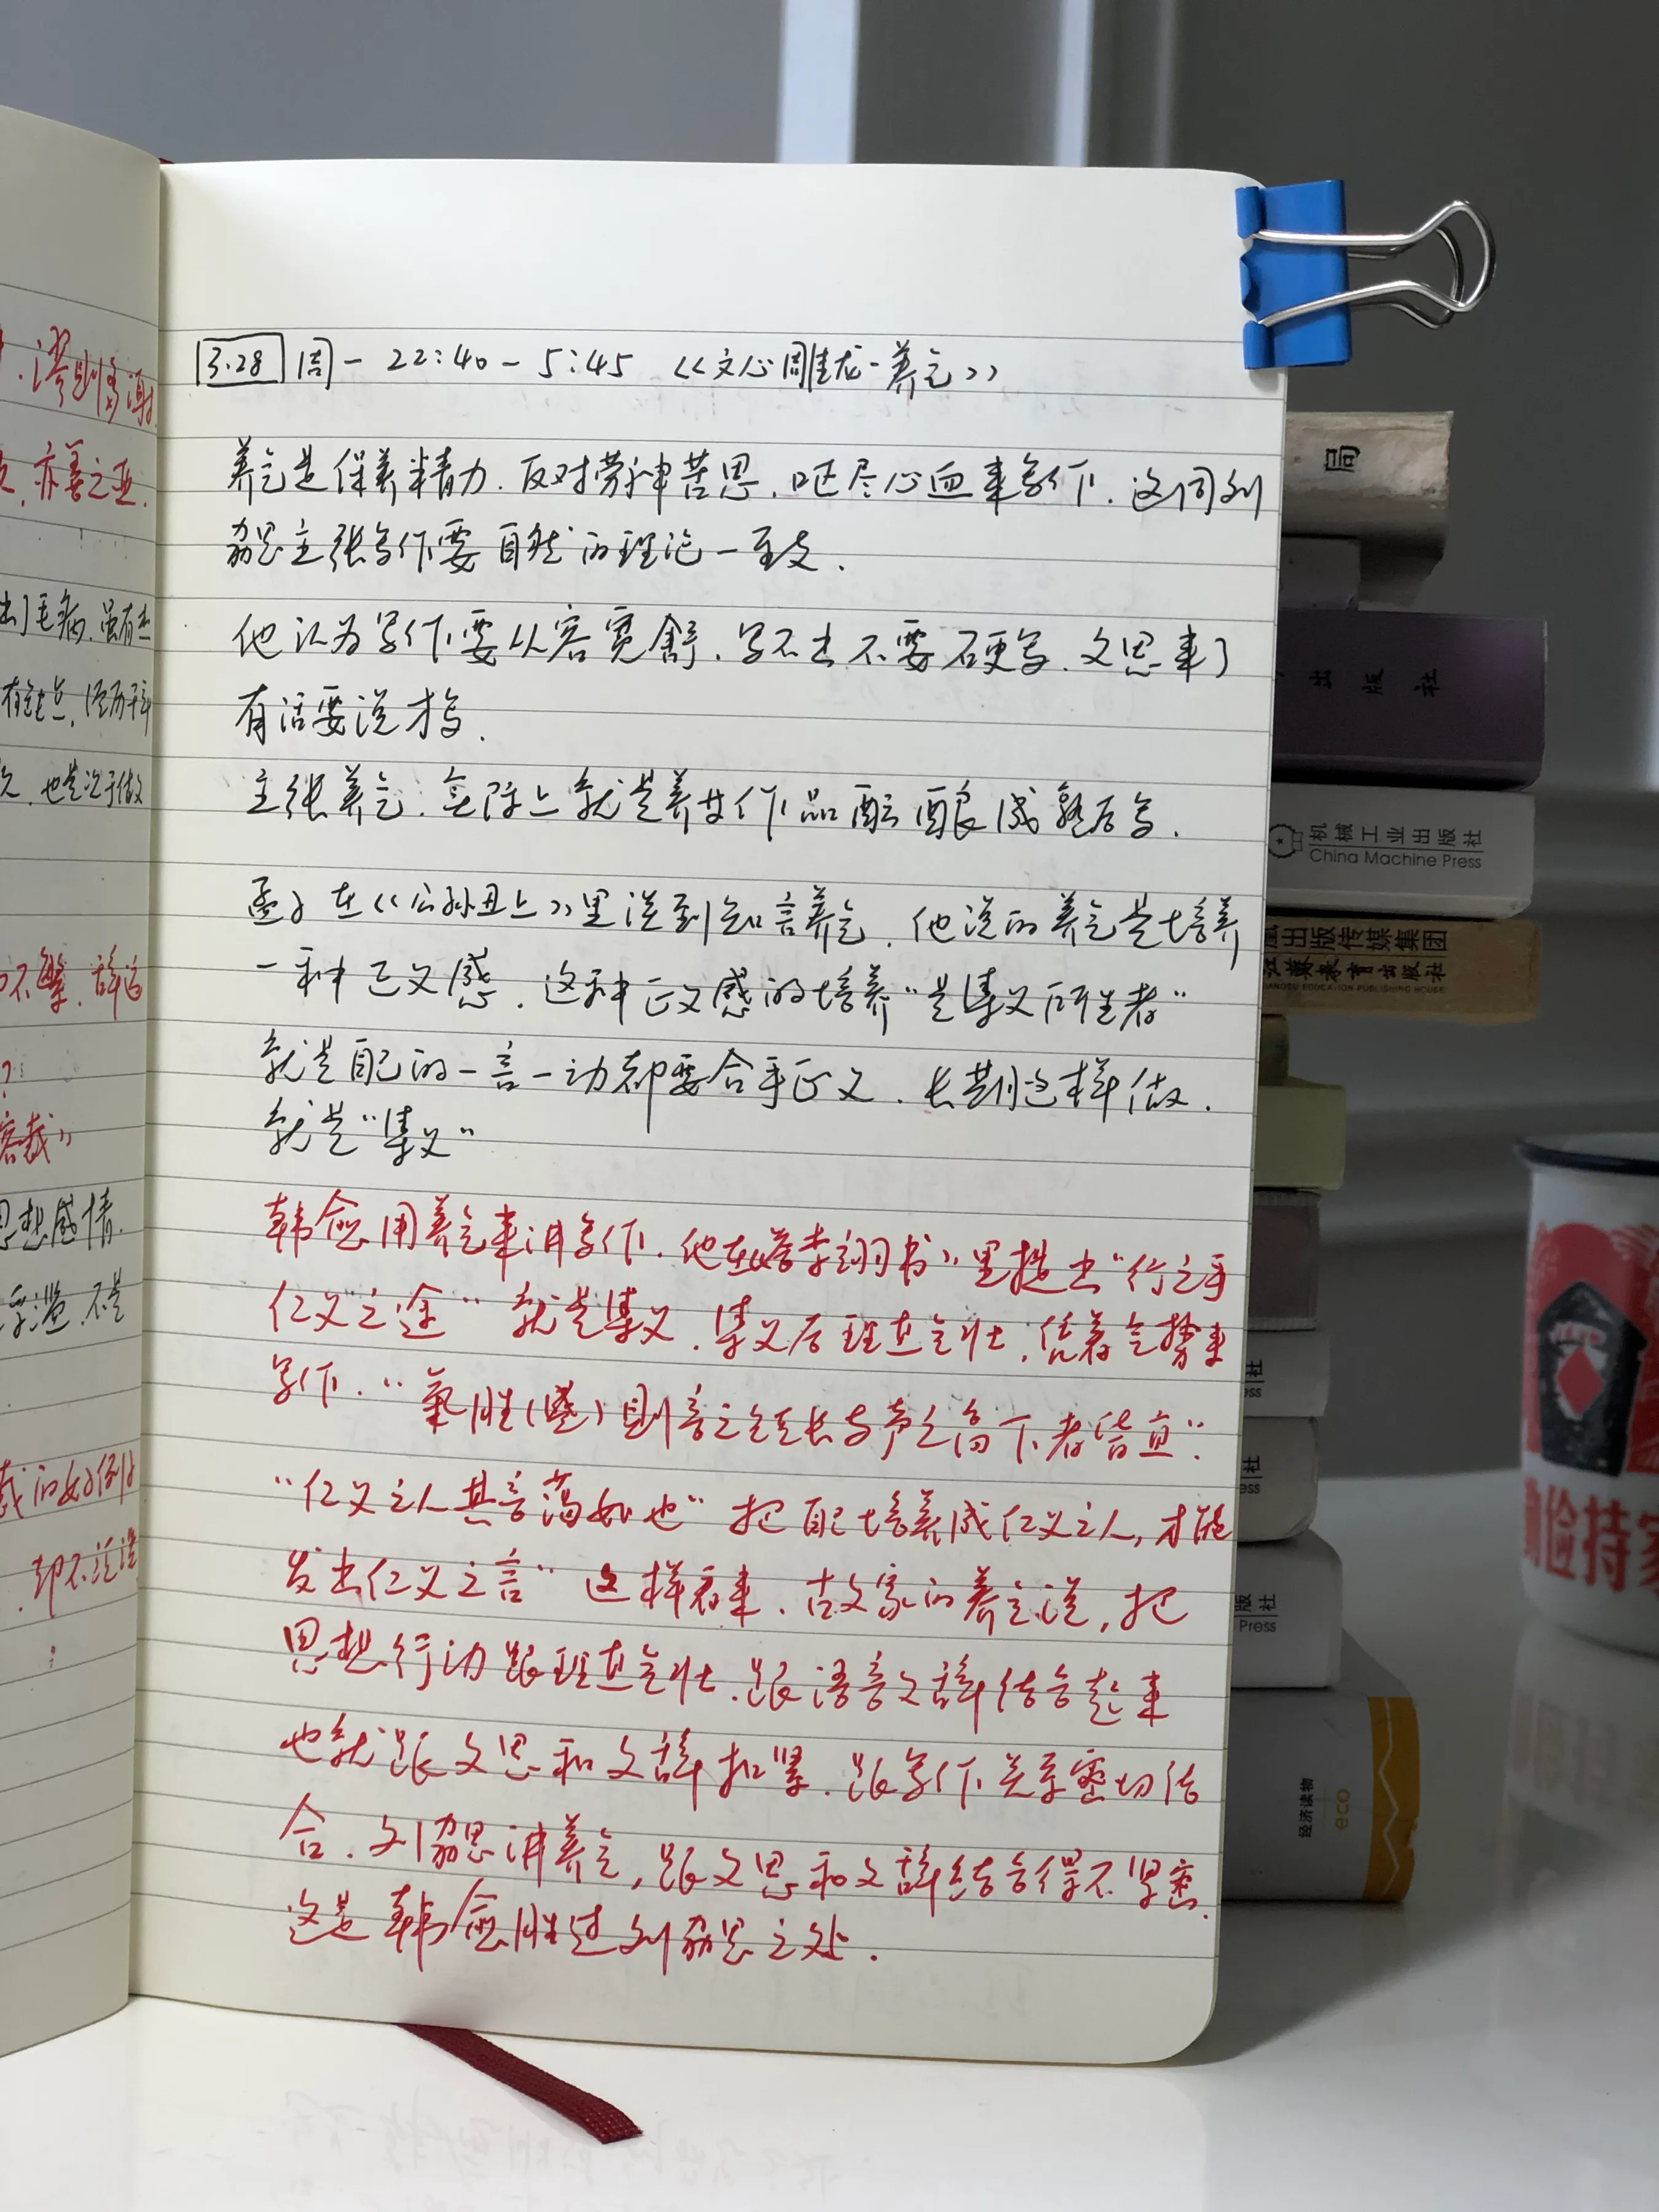 3.28 周一 22:40-5:45 《文心雕龙-养气》
养气是保养精力.反对劳神苦思.呕尽心血来写作.这同刘
勰主张写作要自然的理论一致.
他认为写作要从容宽舒.写不出不要硬写.文思来了
有话要说才写.
主张养气.实际上就是养其作品酝酿成熟后写.
孟子在《公孙丑上》里说到知言养气.他说的养气是培养
一种正义感.这种正义感的培养"是集义所生者"
就是自己的一言一动都要合乎正义.长期这样做.
就是"集义"
韩愈用养气来讲写作.他在《答李翊书》里提出"行之乎
仁义之途"就是集义.集义后理直气壮.凭着气势来
写作."氣胜(盛)则言之短长与声之高下者皆宜".
"仁义之人其言蔼如也"把自己培养成仁义之人,才能
发出仁义之言"这样看来.古文家的养气说,把
思想行动跟理直气壮.跟语言文辞结合起来
也就跟文思和文辞扣紧.跟写作关系密切结
合.刘勰讲养气,跟文思和文辞结合得不紧密.
这是韩愈胜过刘勰之处.
亦善之亚.
出了毛病.虽有
也是次于做
不繁.辞运
思想感情.
浮滥.不是
裁的好例子
局
出版社
机械工业出版社
China Machine Press
凰出版传媒集团
江苏教育出版社
JIANGSU EDUCATION PUBLISHING HOUSE
社
ess
社
ess
版社
Press
经济读物
eco
俭持家